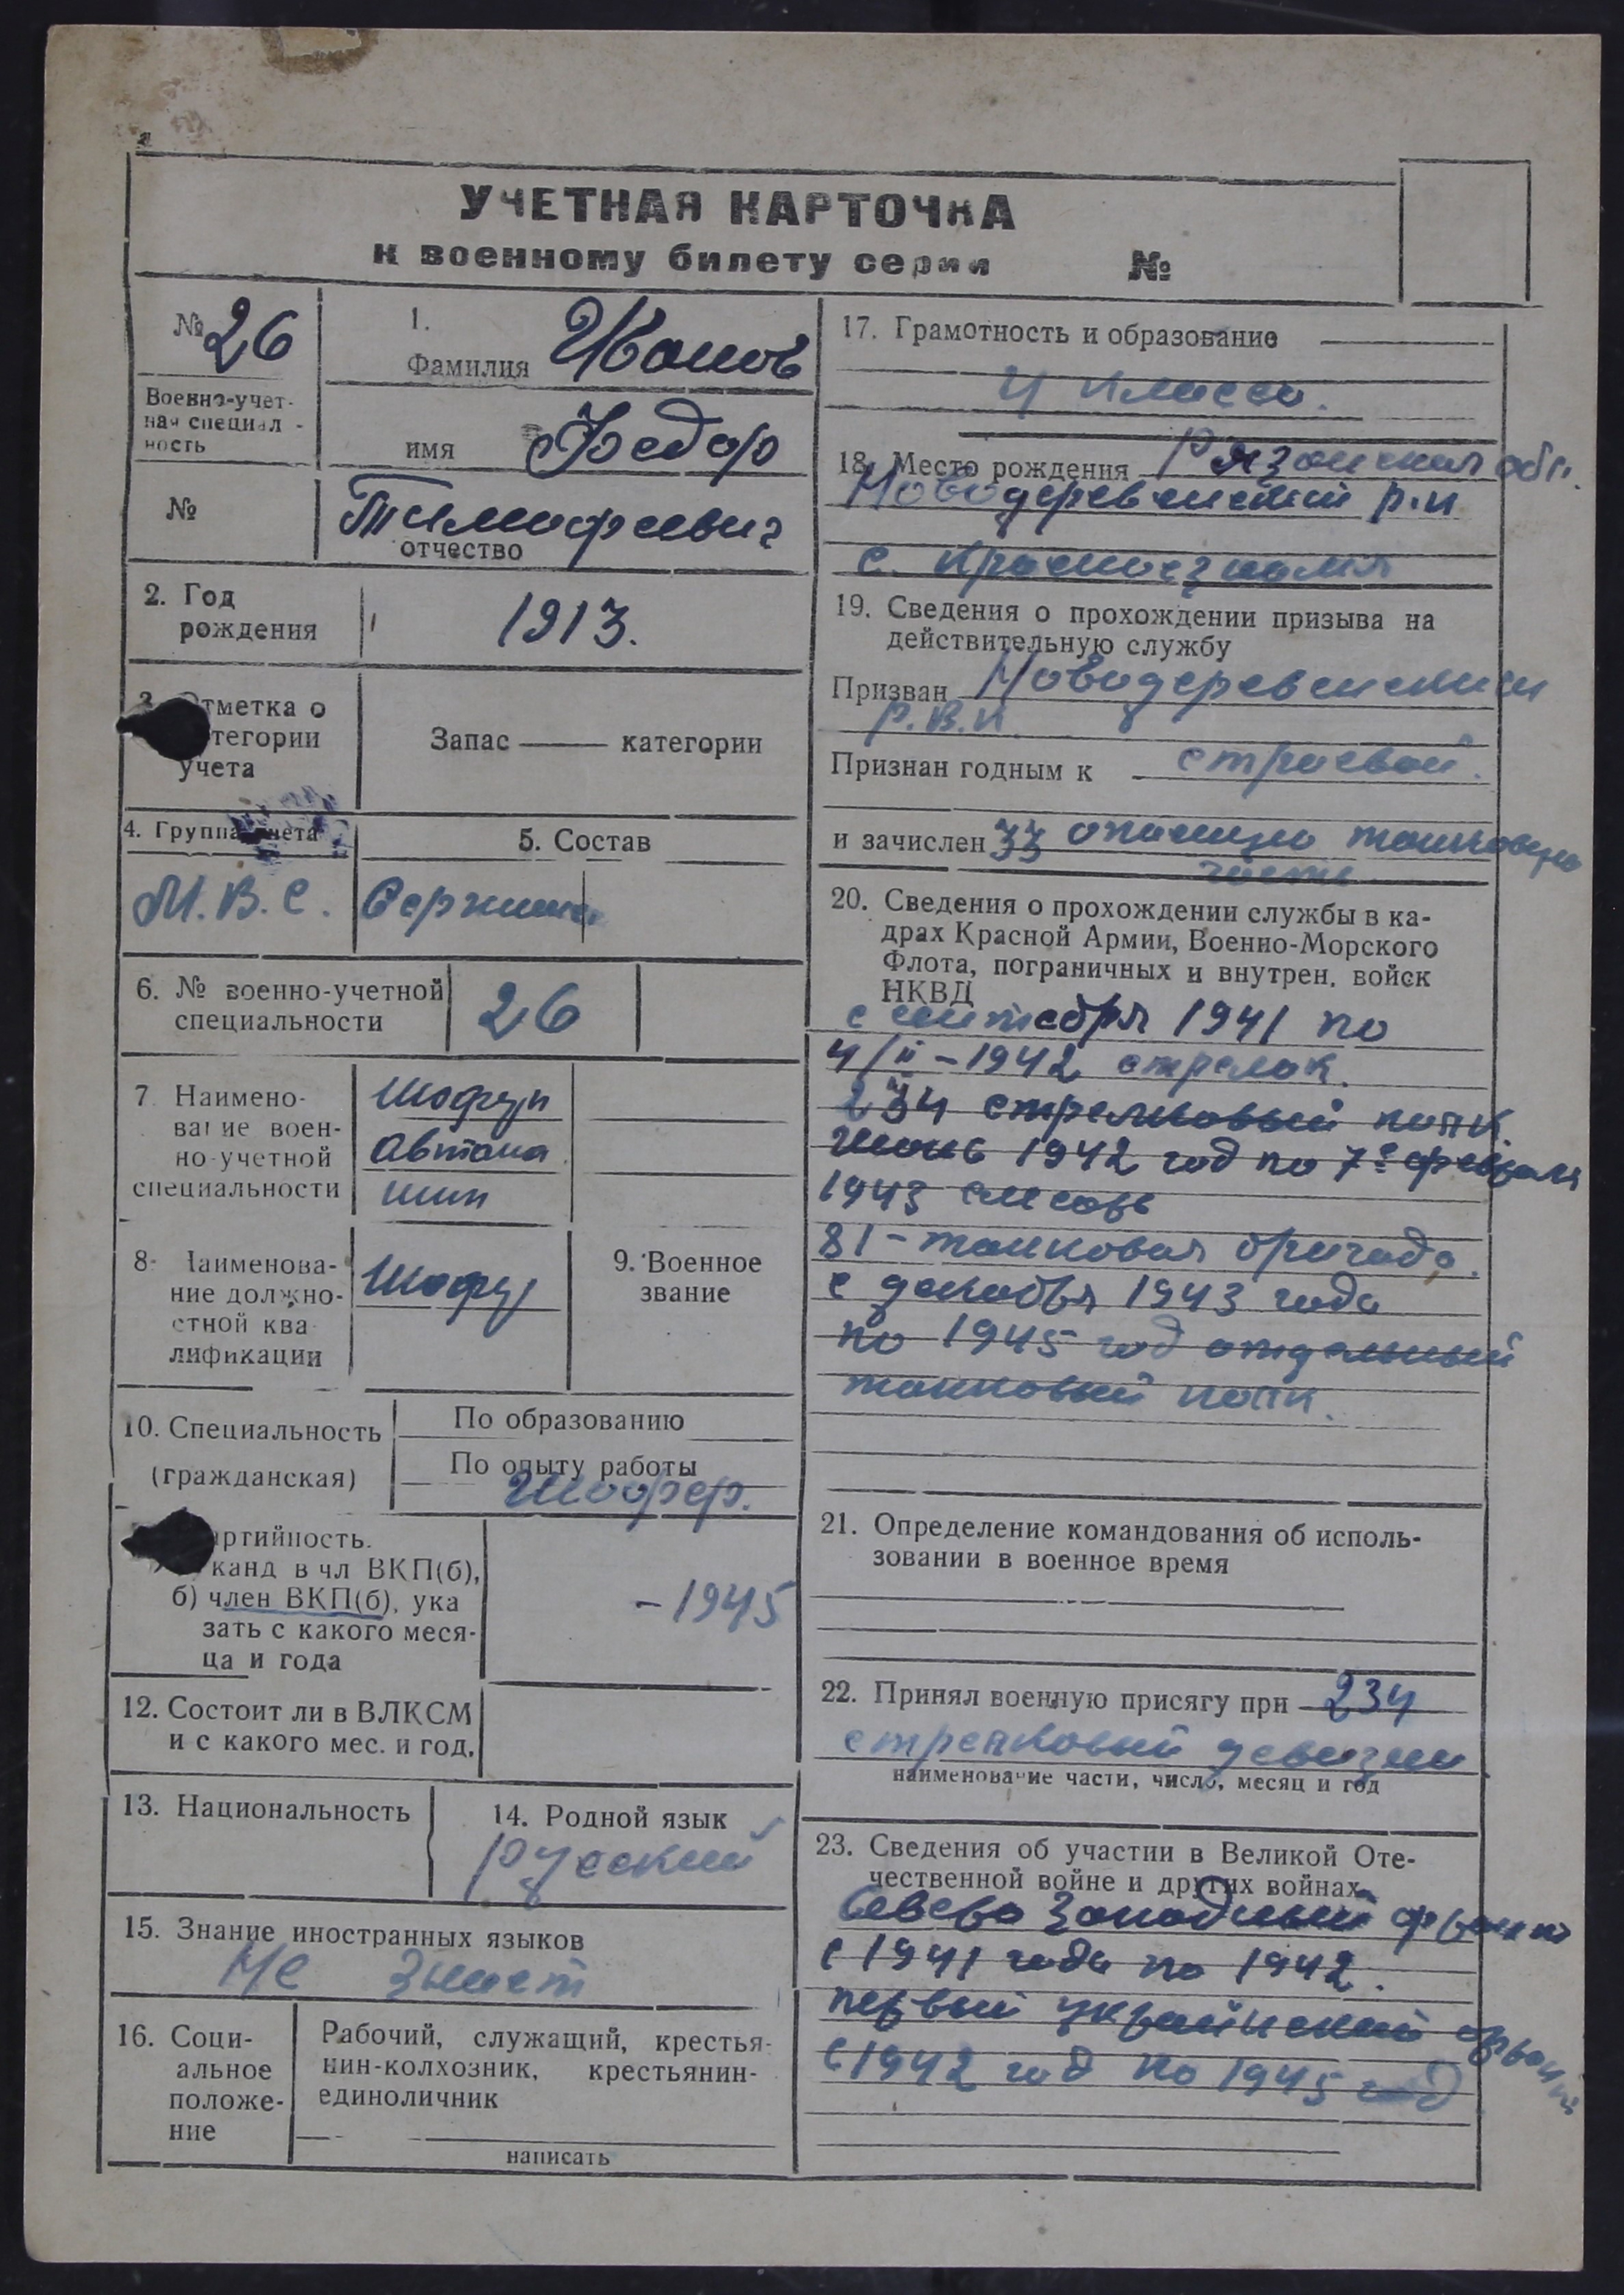 УЧЕТНАЯ КАРТОЧКА
к военному билету серии №
№ 26
Военно-учет-
ная специал-
ность
№
1.
Фамилия Иванов
имя Федор
Тимофеевич
отчество
2. Год
рождения
1913.
3. Отметка о
категории
учета
Запас категории
4. Группа учета
М.В.С.
5. Состав
Сержант
6. № военно-учетной
специальности
26
7. Наимено-
вание воен-
но-учетной
специальности
Шофер
Автома
шин
8. Наименова-
ние должно-
стной ква
лификации
Шофер
9. Военное
звание
10. Специальность
(гражданская)
По образованию
По опыту работы
Шофер.
партийность.
канд в чл ВКП(б),
б) член ВКП(б), ука
зать с какого меся-
ца и года
-1945
12. Состоит ли в ВЛКСМ
и с какого мес. и год,
13. Национальность
14. Родной язык
Русский
15. Знание иностранных языков
Не знает
16. Соци-
альное
положе-
ние
Рабочий, служащий, крестья-
нин-колхозник, крестьянин-
единоличник
написать
17. Грамотность и образование
4 класса.
18. Место рождения Рязанская обл.
Новодеревенский р-н
с. Красное знамя
19. Сведения о прохождении призыва на
действительную службу
Призван Новодеревенским
Р.В.К.
Признан годным к строевой.
и зачислен 33 танковую
часть
20. Сведения о прохождении службы в ка-
драх Красной Армии, Военно-Морского
Флота, пограничных и внутрен. войск
НКВД
с сентебря 1941 по
4/II-1942 стрелок.
234 стрелковый полк.
Июнь 1942 год по 7е февраля
1943 слесарь
81-танковая бригада.
с декабря 1943 года
по 1945 год отдельный
танковый полк.
21. Определение командования об исполь-
зовании в военное время
22. Принял военную присягу при 234
стрелковый девизии
наименование части, число, месяц и год
23. Сведения об участии в Великой Оте-
чественной войне и других войнах
Северо Западный фронт
с 1941 года по 1942.
первый украинский фронт
с 1942 год по 1945 год